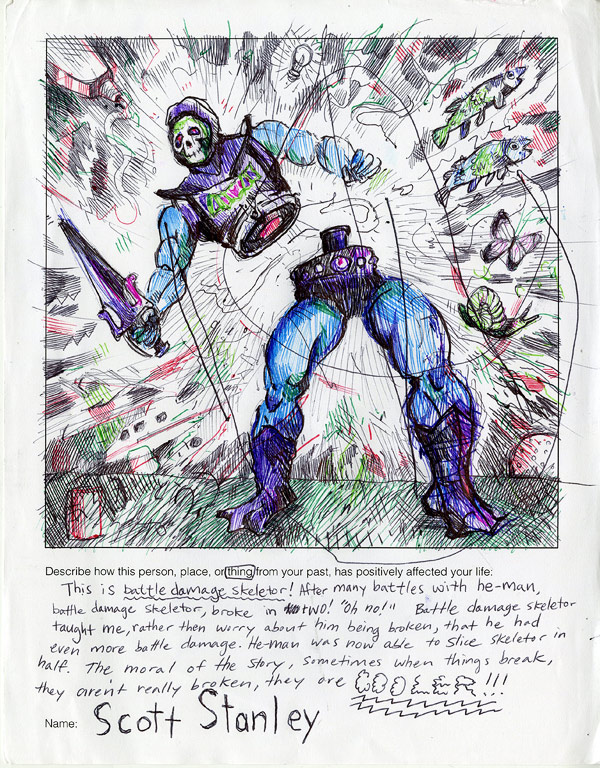 Describe how this person, place, or thing from your past, has positively affected your life:
This is battle damage skeletor! After many battles with he-man,
battle damage skeletor, broke in two! "Oh no!" Battle damage skeletor
taught me, rather then worry about him being broken, that he had
even more battle damage. He-man was now able to slice skeletor in
half. The moral of the story, sometimes when things break,
they aren't really broken, they are COOLER!!!
Name: Scott Stanley